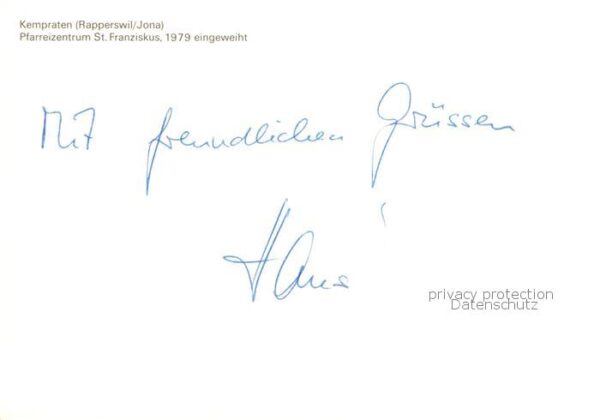 Kempraten (Rapperswil/Jona)
Pfarreizentrum St. Franziskus, 1979 eingeweiht
Mit freundlichen Grüssen
Hans
privacy protection
Datenschutz